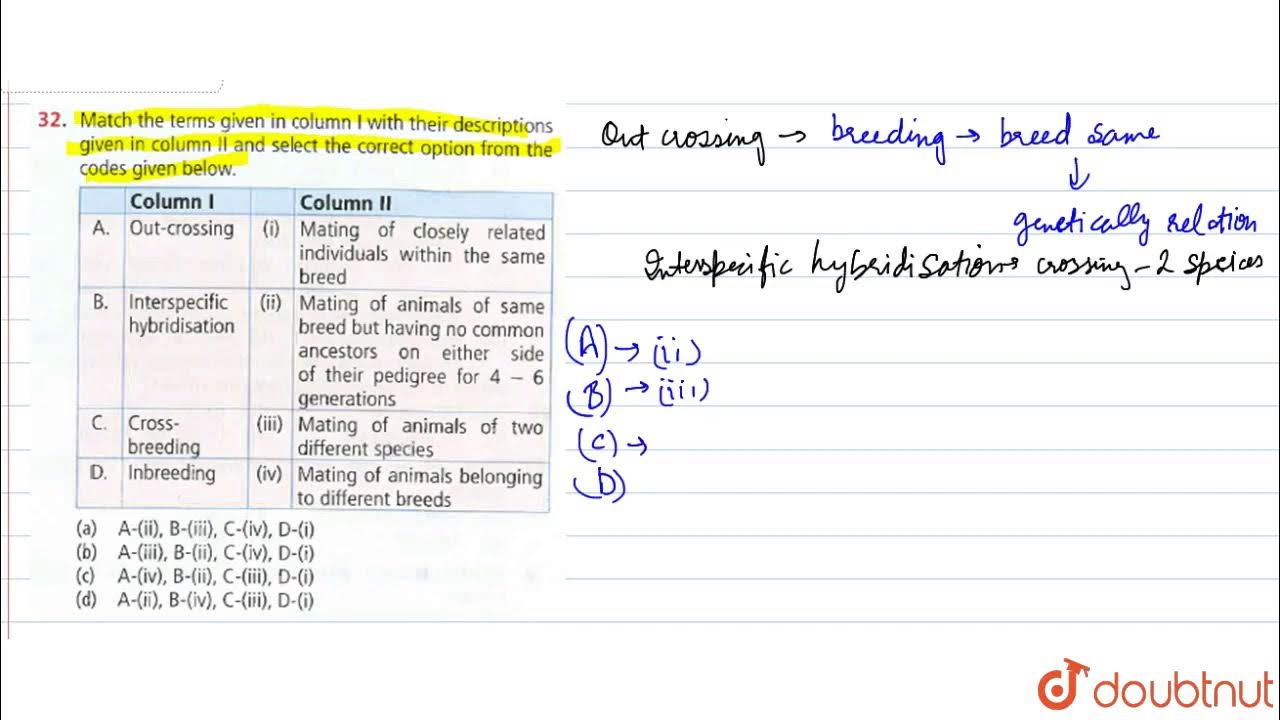 32. Match the terms given in column I with their descriptions
given in column II and select the correct option from the
codes given below.
Column I Column II
A. Out-crossing (i) Mating of closely related
individuals within the same
breed
B. Interspecific (ii) Mating of animals of same
hybridisation breed but having no common
ancestors on either side
of their pedigree for 4 – 6
generations
C. Cross- (iii) Mating of animals of two
breeding different species
D. Inbreeding (iv) Mating of animals belonging
to different breeds
(a) A-(ii), B-(iii), C-(iv), D-(i)
(b) A-(iii), B-(ii), C-(iv), D-(i)
(c) A-(iv), B-(ii), C-(iii), D-(i)
(d) A-(ii), B-(iv), C-(iii), D-(i)
Out crossing → breeding → breed same
↓
genetically relation
Interspecific hybridisation → crossing – 2 speices
(A) → (ii)
(B) → (iii)
(C) →
(D)
doubtnut